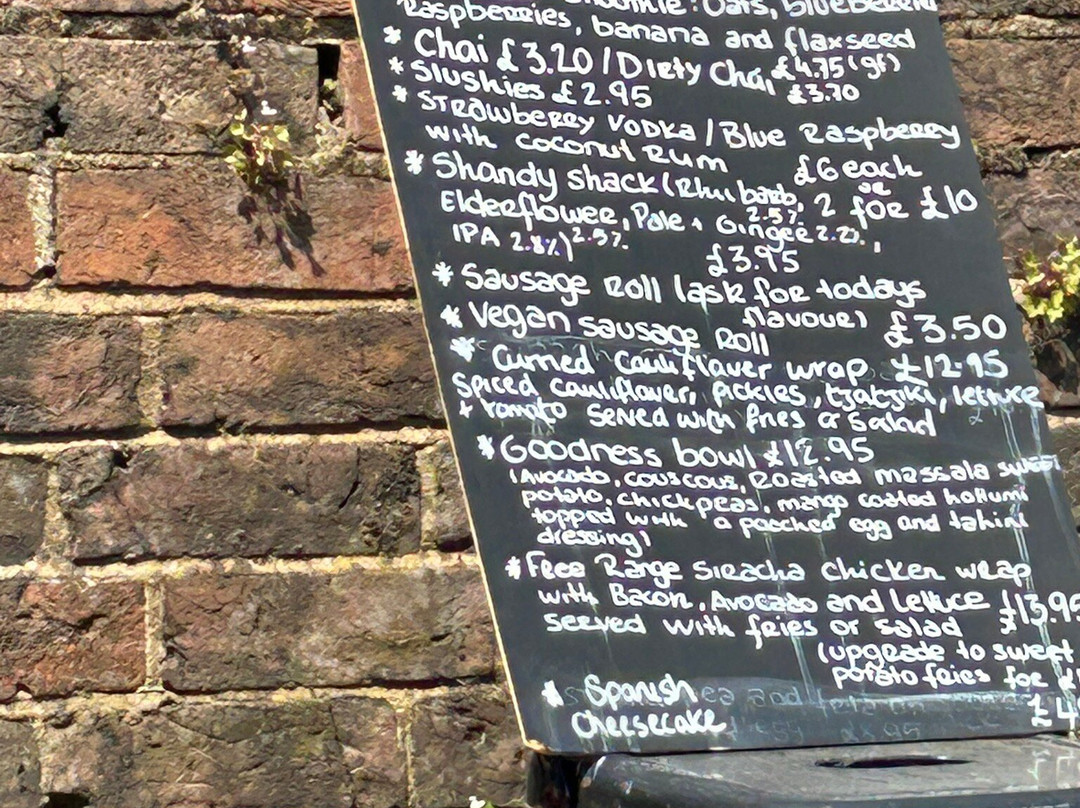 Smoothie: Oats, blueberries
Raspberries, banana and flaxseed
* Chai £3.20 / Dirty Chai £4.75 (gf)
* Slushies £2.95 £3.70
* Strawberry Vodka / Blue Raspberry
with coconut Rum £6 each
or
* Shandy shack (Rhubarb, 2 for £10
Elderflower, Pale + Ginger 2.2%,
2.5%
IPA 2.8%) 2.5%
£3.95
* Sausage Roll (ask for todays
flavour) £3.50
* Vegan sausage Roll
* Curried Cauliflaver wrap £12.95
Spiced cauliflaver, pickles, tzatziki, lettuce
+ tomato served with fries or salad
* Goodness bowl £12.95
(Avocado, couscous, Roasted massala sweet
potato, chickpeas, mango coated hallumi
topped with a poached egg and tahini
dressing)
* Free Range Siracha chicken wrap
with Bacon, Avocado and lettuce £13.95
served with fries or salad
(upgrade to sweet
potato fries for £1
* Spanish
Cheesecake £4